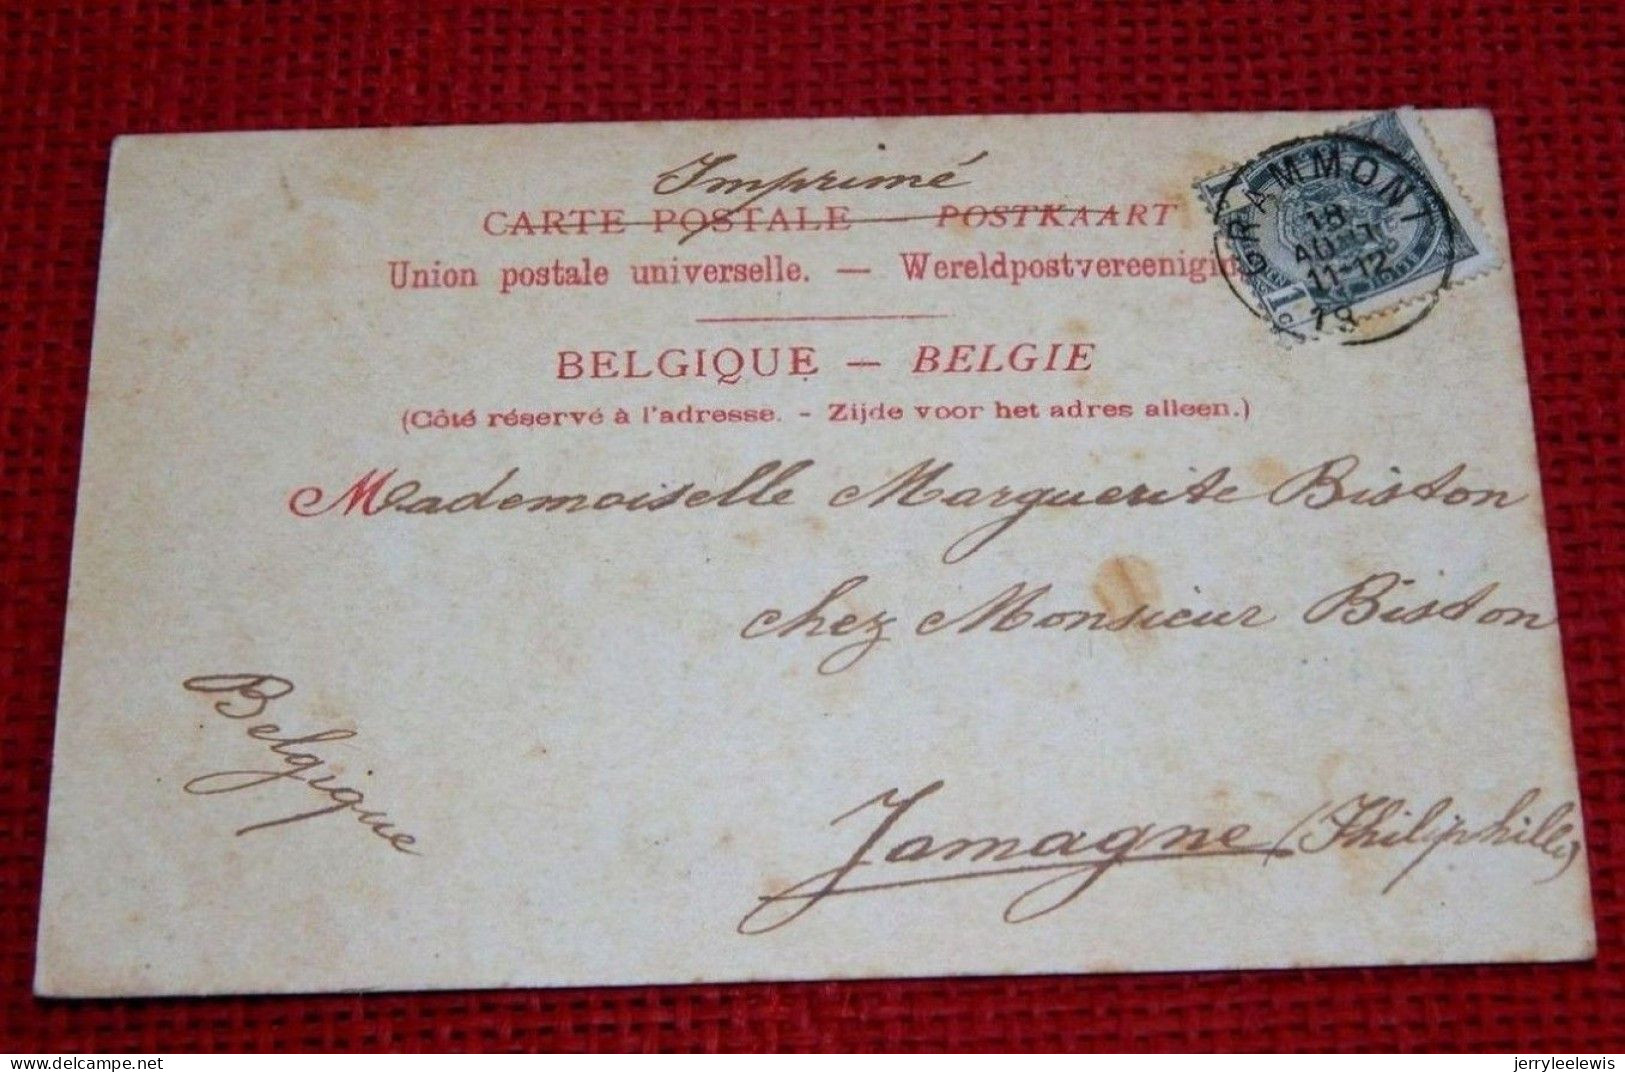 Imprimé
CARTE POSTALE — POSTKAART
Union postale universelle. — Wereldpostvereeniging
BELGIQUE — BELGIE
(Côté réservé à l'adresse. - Zijde voor het adres alleen.)
Mademoiselle Marguerite Biston
chez Monsieur Biston
Jamagne (Philiphille)
Belgique
GRAMMONT
18
AOUT
11-12
1
1
delcampe.net
jerryleelewis